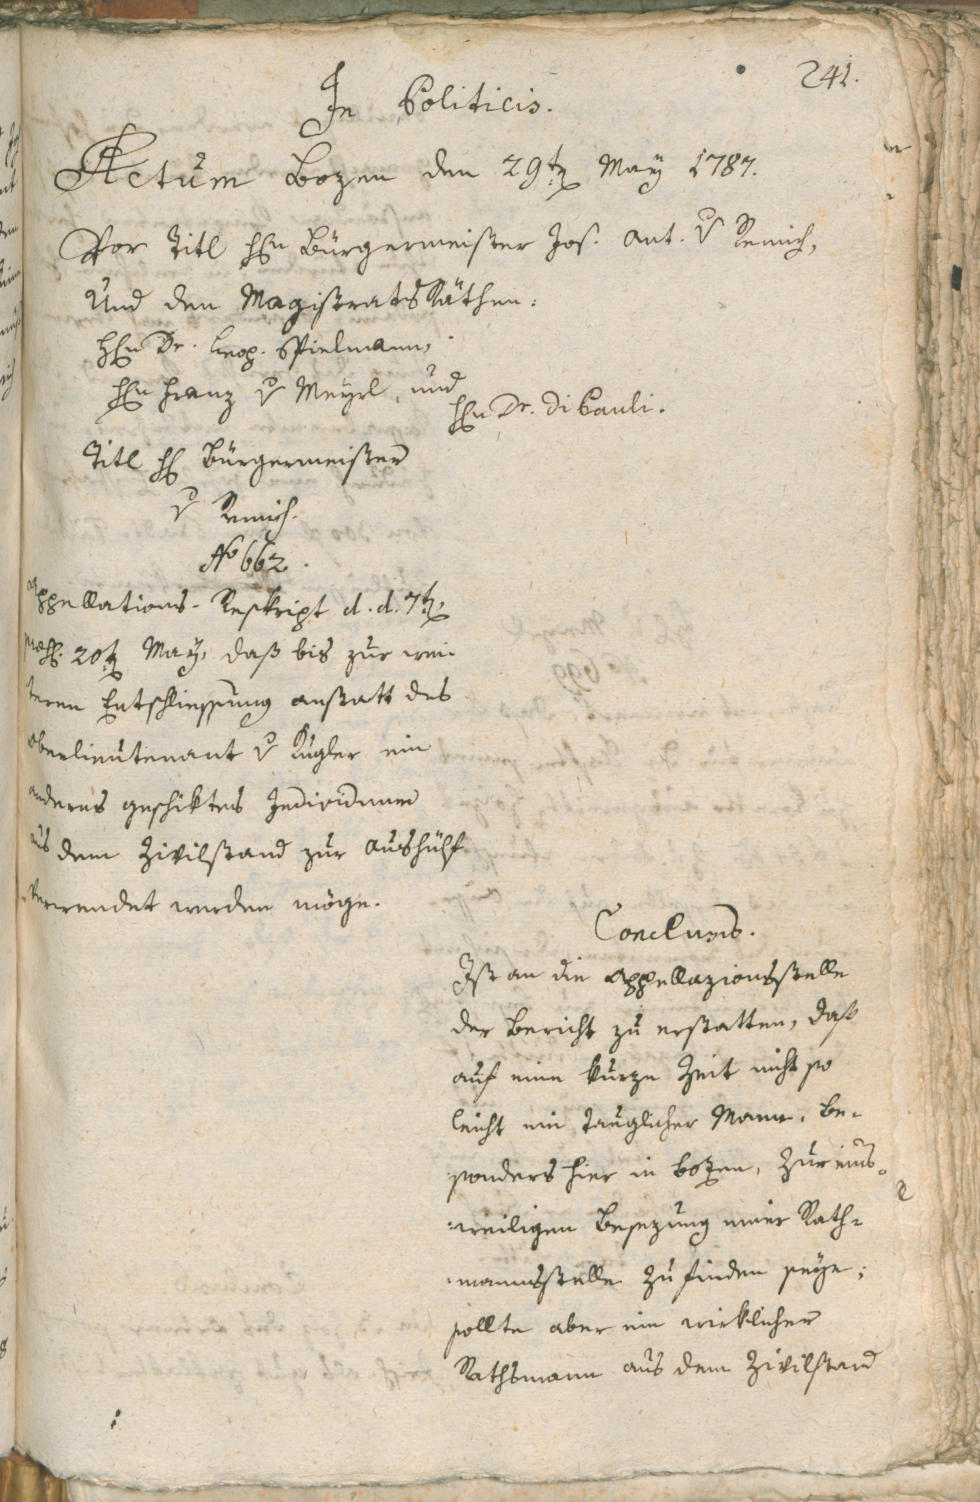 241.
In Politicis.
Actum Bozen den 29t. May 1787.
Vor Titl Hℏn Bürgermeister Jos. Ant. v Remich,
Und den Magistrats Räthen:
Hℏn Dr. Leop. Spielmann,
Hℏn Franz v Meyrl, und
Hℏn Dr. Di Pauli.
Titl Hℏ Bürgermeister
v Remich.
No 662.
Appellations-Reskript d. d. 7t,
præs. 20t May, daß bis zur wei-
teren Entschliessung anstatt des
Oberlieutenant v Kugler ein
anderes geschiktes Individuum
aus dem Zivilstand zur Aushülf
verwendet werden möge.
Conclusio.
Ist an die Appellazionsstelle
der Bericht zu erstatten, daß
auf eine kurze Zeit nicht so
leicht ein tauglicher Mann, be-
sonders hier in Bozen, zur eins-
weiligen Besezung einer Rath-
mannsstelle zu finden seye;
sollte aber ein wirklicher
Rathsmann aus dem Zivilstand